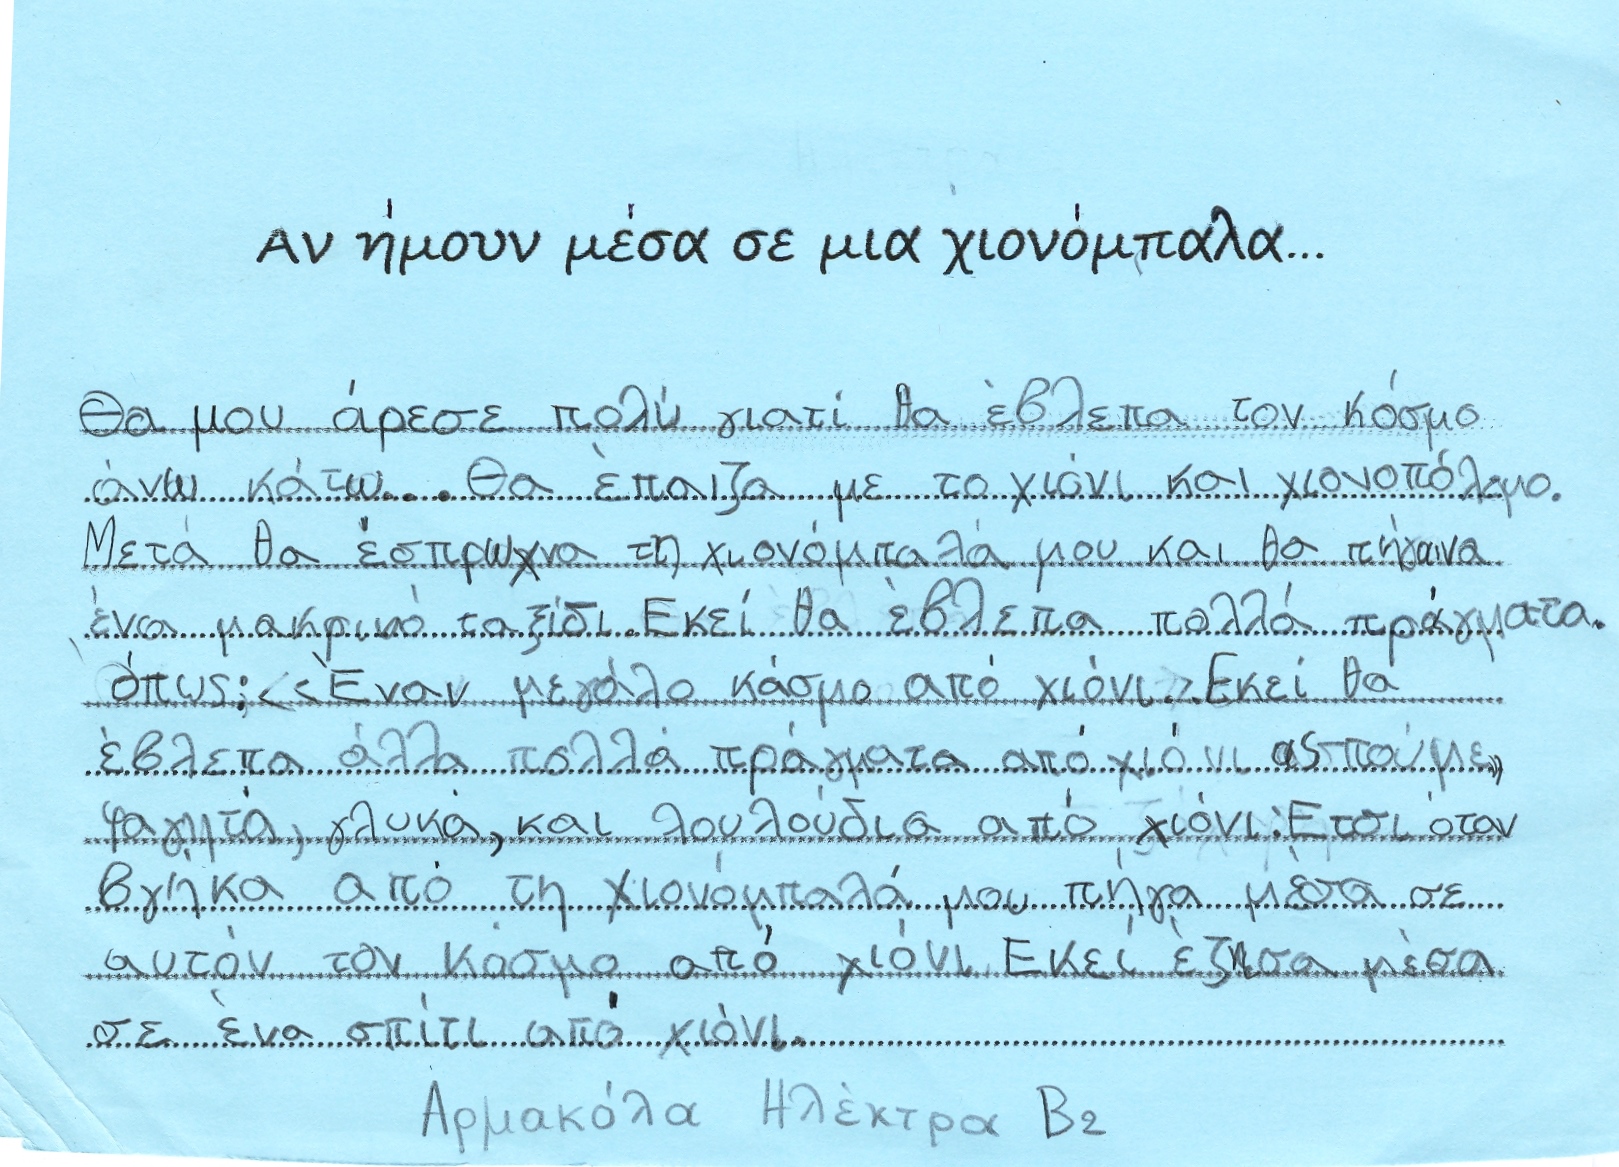 Αν ήμουν μέσα σε μια χιονόμπαλα...
Θα μου άρεσε πολύ γιατί θα έβλεπα τον κόσμο
άνω κάτω... Θα έπαιζα με το χιόνι και χιονοπόλεμο.
Μετά θα έσπρωχνα τη χιονόμπαλά μου και θα πήγαινα
ένα μακρινό ταξίδι. Εκεί θα έβλεπα πολλά πράγματα.
όπως; <<Έναν μεγάλο κόσμο από χιόνι.>> Εκεί θα
έβλεπα άλλα πολλά πράγματα από χιόνι ας πούμε»
φαγητά, γλυκά, και λουλούδια από χιόνι. Έτσι όταν
βγήκα από τη χιονόμπαλά μου πήγα μέσα σε
αυτόν τον κόσμο από χιόνι. Εκεί έζησα μέσα
σε ένα σπίτι από χιόνι.
Αρμακόλα Ηλέκτρα Β2